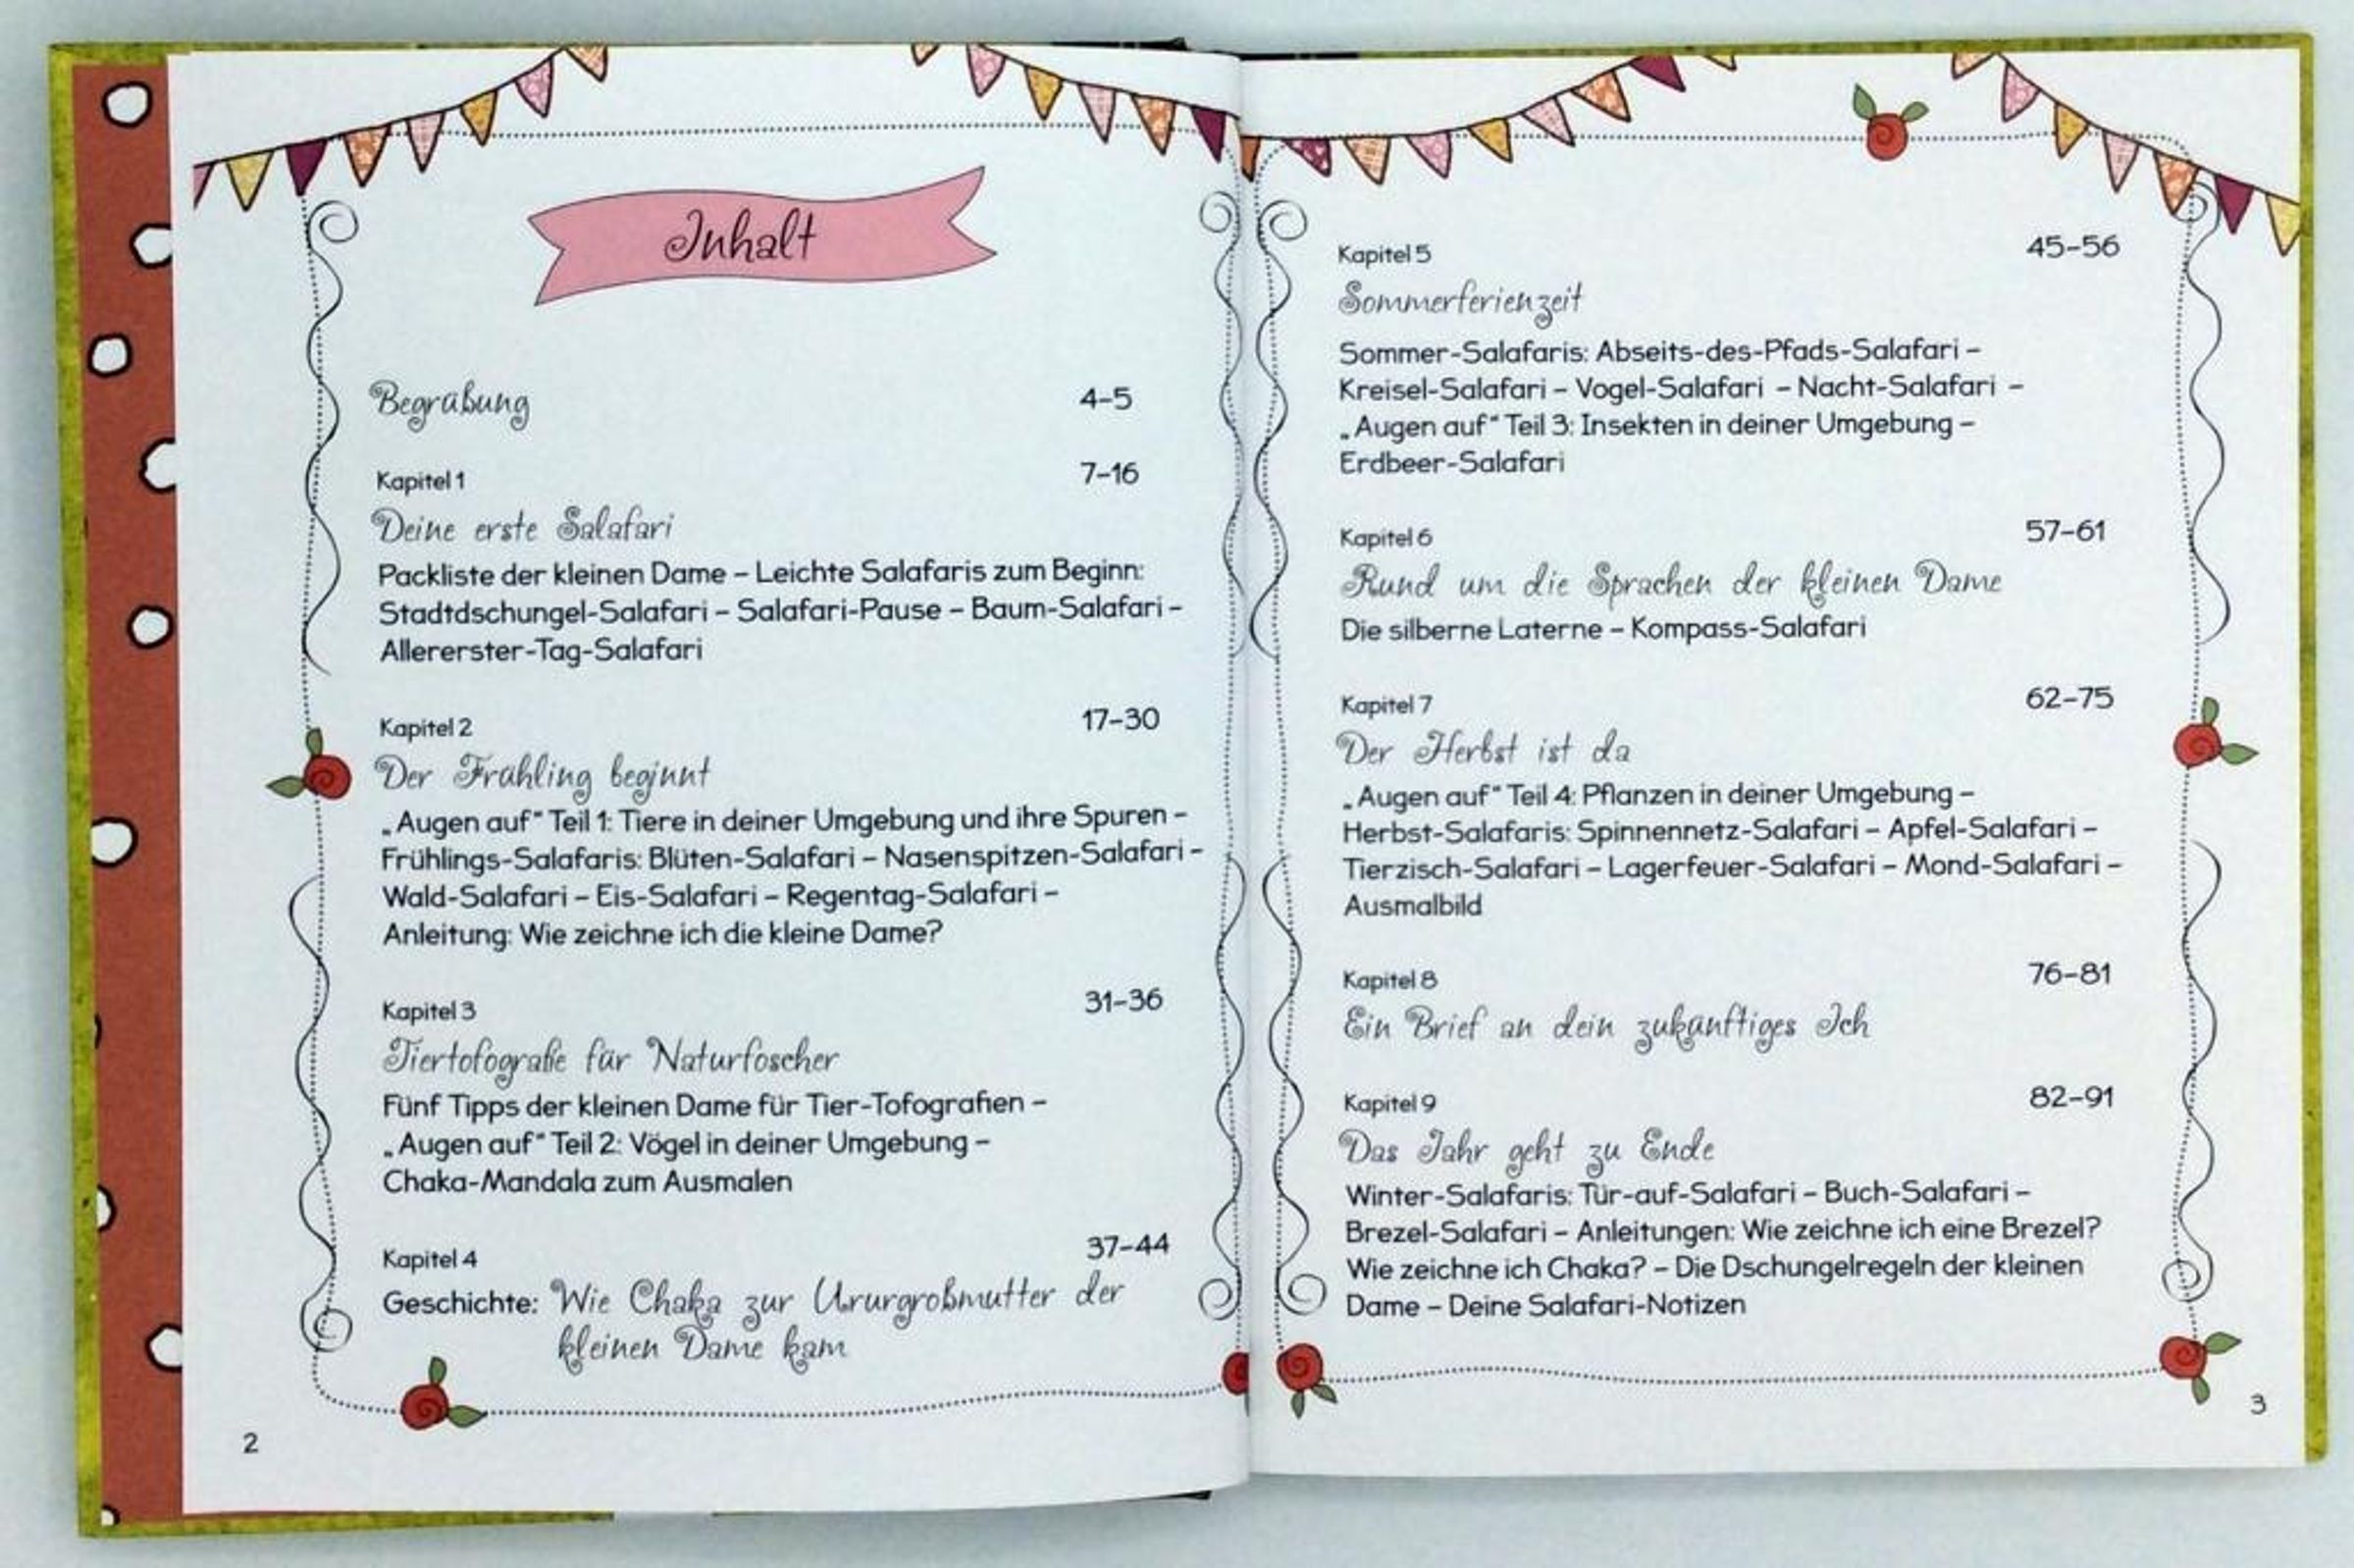 Inhalt
Begrüßung 4–5
Kapitel 1 7–16
Deine erste Salafari
Packliste der kleinen Dame – Leichte Salafaris zum Beginn:
Stadtdschungel-Salafari – Salafari-Pause – Baum-Salafari –
Allererster-Tag-Salafari
Kapitel 2 17–30
Der Frühling beginnt
„Augen auf“ Teil 1: Tiere in deiner Umgebung und ihre Spuren –
Frühlings-Salafaris: Blüten-Salafari – Nasenspitzen-Salafari –
Wald-Salafari – Eis-Salafari – Regentag-Salafari –
Anleitung: Wie zeichne ich die kleine Dame?
Kapitel 3 31–36
Tiertofografie für Naturfoscher
Fünf Tipps der kleinen Dame für Tier-Tofografien –
„Augen auf“ Teil 2: Vögel in deiner Umgebung –
Chaka-Mandala zum Ausmalen
Kapitel 4 37–44
Geschichte: Wie Chaka zur Ururgroßmutter der
kleinen Dame kam
2
Kapitel 5 45–56
Sommerferienzeit
Sommer-Salafaris: Abseits-des-Pfads-Salafari –
Kreisel-Salafari – Vogel-Salafari – Nacht-Salafari –
„Augen auf“ Teil 3: Insekten in deiner Umgebung –
Erdbeer-Salafari
Kapitel 6 57–61
Rund um die Sprachen der kleinen Dame
Die silberne Laterne – Kompass-Salafari
Kapitel 7 62–75
Der Herbst ist da
„Augen auf“ Teil 4: Pflanzen in deiner Umgebung –
Herbst-Salafaris: Spinnennetz-Salafari – Apfel-Salafari –
Tierzisch-Salafari – Lagerfeuer-Salafari – Mond-Salafari –
Ausmalbild
Kapitel 8 76–81
Ein Brief an dein zukünftiges Ich
Kapitel 9 82–91
Das Jahr geht zu Ende
Winter-Salafaris: Tür-auf-Salafari – Buch-Salafari –
Brezel-Salafari – Anleitungen: Wie zeichne ich eine Brezel?
Wie zeichne ich Chaka? – Die Dschungelregeln der kleinen
Dame – Deine Salafari-Notizen
3